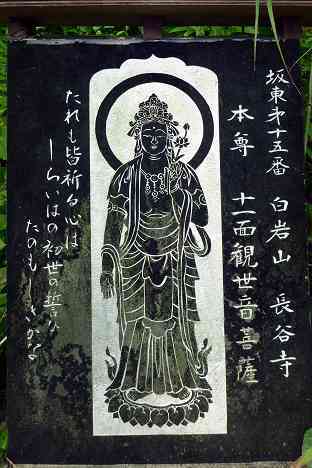 坂東第十五番 白岩山 長谷寺
本尊 十一面觀世音菩薩
たれも皆祈る心は
しらいはの初世の誓ひ
たのもしきかな